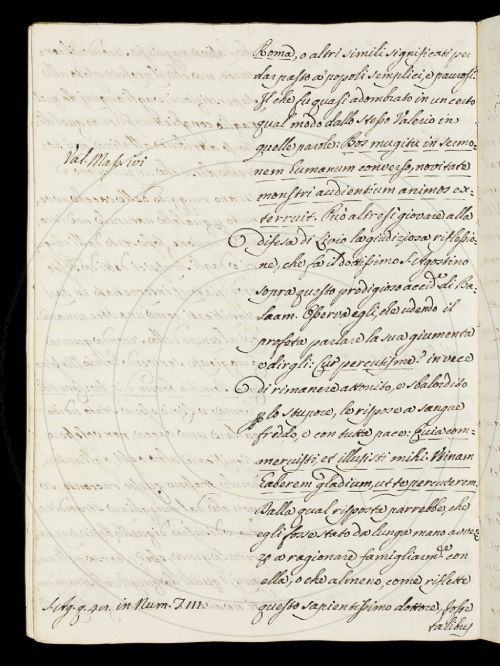 Roma, o altri simili significati per
dar pasto a popoli semplici, e paurosi.
Il che fu quasi adombrato in un certo
qual modo dallo stesso Valerio in
quelle parole: Bos mugitu in sermo-
Val. Mass. ivi
nem humanum converso, novitate
monstri audientium animos ex-
terruit. Può altresì giovare alla
difesa di Livio la giudiziosa riflessio-
ne, che fa il dottissimo S. Agostino
sopra questo prodigioso accid.e di Ba-
laam. Osserva egli, che udendo il
profeta parlare la sua giumenta
e dirgli: Cur percutis me? in vece
di rimanere attonito, e sbalordito
p lo stupore, le rispose a sangue
freddo, e con tutta pace: Quia com-
meruisti et illusisti mihi: Utinam
haberem gladium, ut te percuterem.
Dalla qual risposta parrebbe, che
egli fosse stato da lunga mano avvez-
zo a ragionare famigliarm.te con
ella, o che almeno, come riflette
S. Ag. q. 48. in Num. T. III.
questo sapientissimo dottore, fosse
talibus